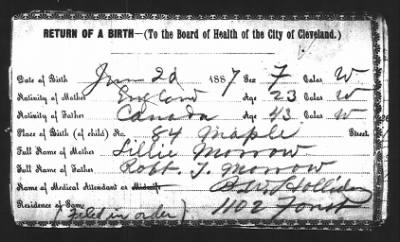 RETURN OF A BIRTH—(To the Board of Health of the City of Cleveland.)
Date of Birth Jun 2d 1887 Sex F Color W
Nativity of Mother England Age 23 Color W
Nativity of Father Canada Age 43 Color W
Place of Birth (of child) No. 84 Maple Street.
Full Name of Mother Lillie Morrow
Full Name of Father Robt. J. Morrow
Name of Medical Attendant or Midwife Holliday
Residence of Same 1102
(Filed in order)